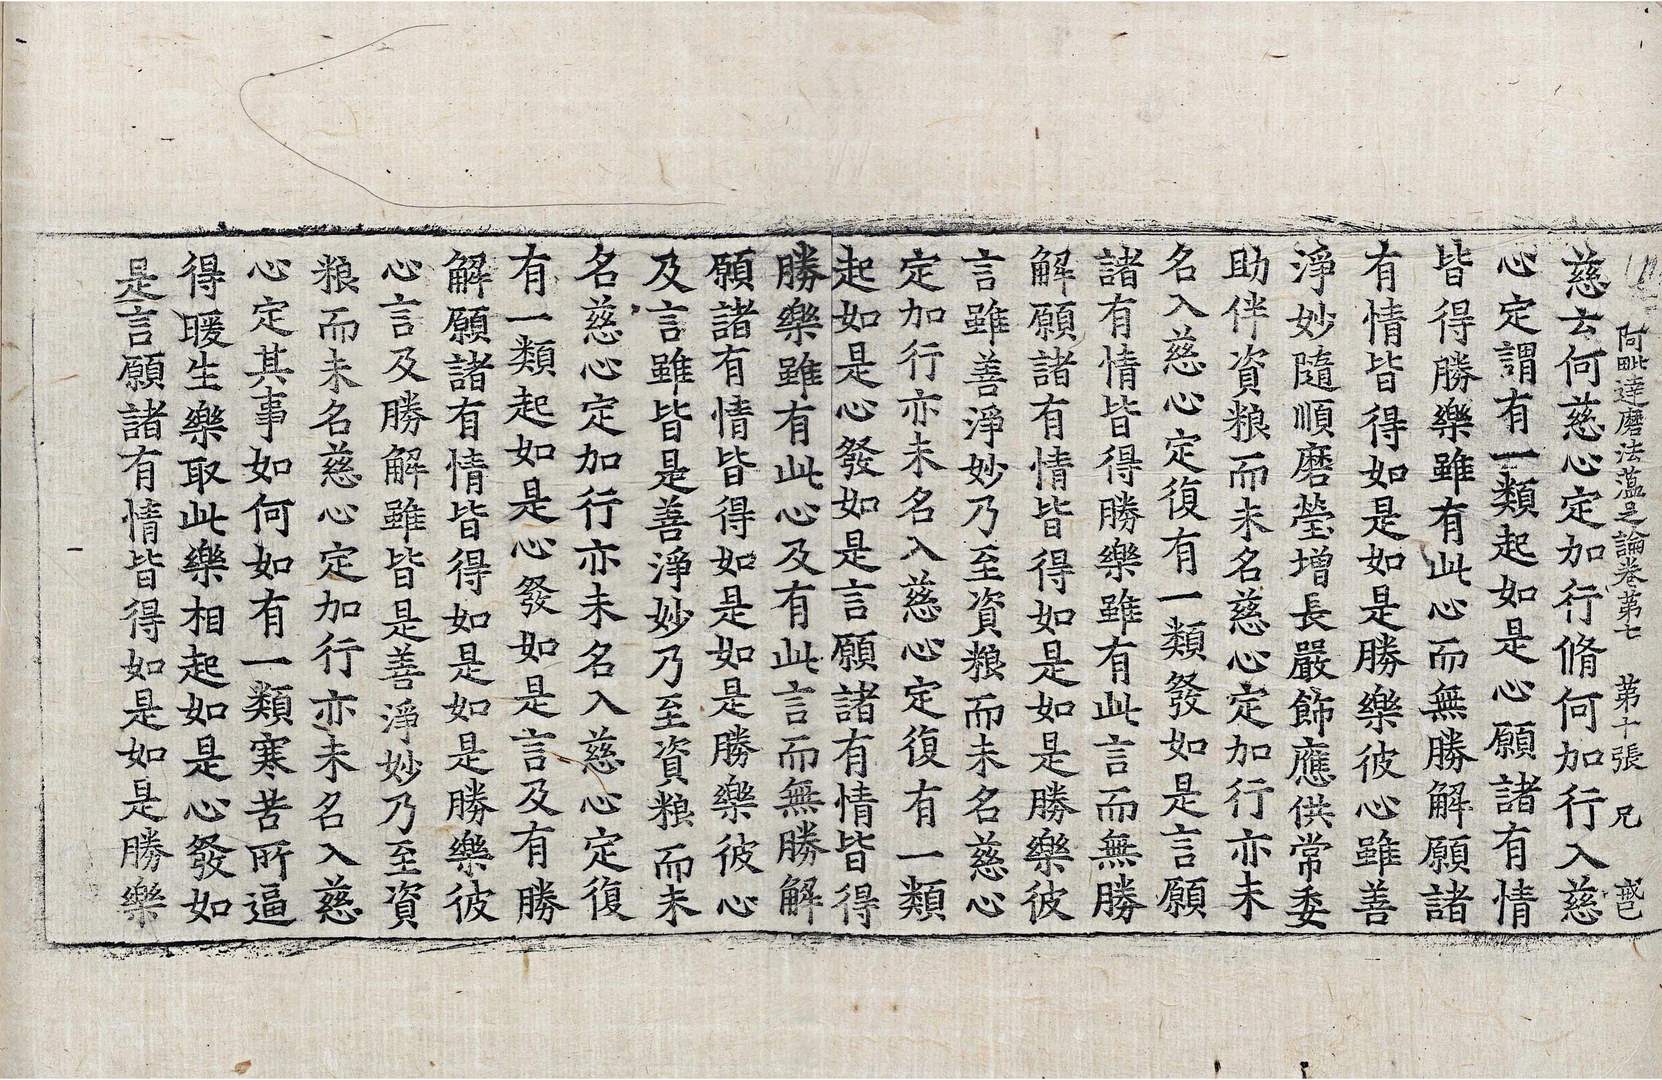 阿毗達磨法蘊足論卷第七 第十張 兄
慈云何慈心定加行脩何加行入慈
心定謂有一類起如是心願諸有情
皆得勝樂雖有此心而無勝解願諸
有情皆得如是如是勝樂彼心雖善
淨妙隨順磨瑩增長嚴飾應供常委
助伴資粮而未名慈心定加行亦未
名入慈心定復有一類發如是言願
諸有情皆得勝樂雖有此言而無勝
解願諸有情皆得如是如是勝樂彼
言雖善淨妙乃至資粮而未名慈心
定加行亦未名入慈心定復有一類
起如是心發如是言願諸有情皆得
勝樂雖有此心及有此言而無勝解
願諸有情皆得如是如是勝樂彼心
及言雖皆是善淨妙乃至資粮而未
名慈心定加行亦未名入慈心定復
有一類起如是心發如是言及有勝
解願諸有情皆得如是如是勝樂彼
心言及勝解雖皆是善淨妙乃至資
粮而未名慈心定加行亦未名入慈
心定其事如何如有一類寒苦所逼
得暖生樂取此樂相起如是心發如
是言願諸有情皆得如是如是勝樂